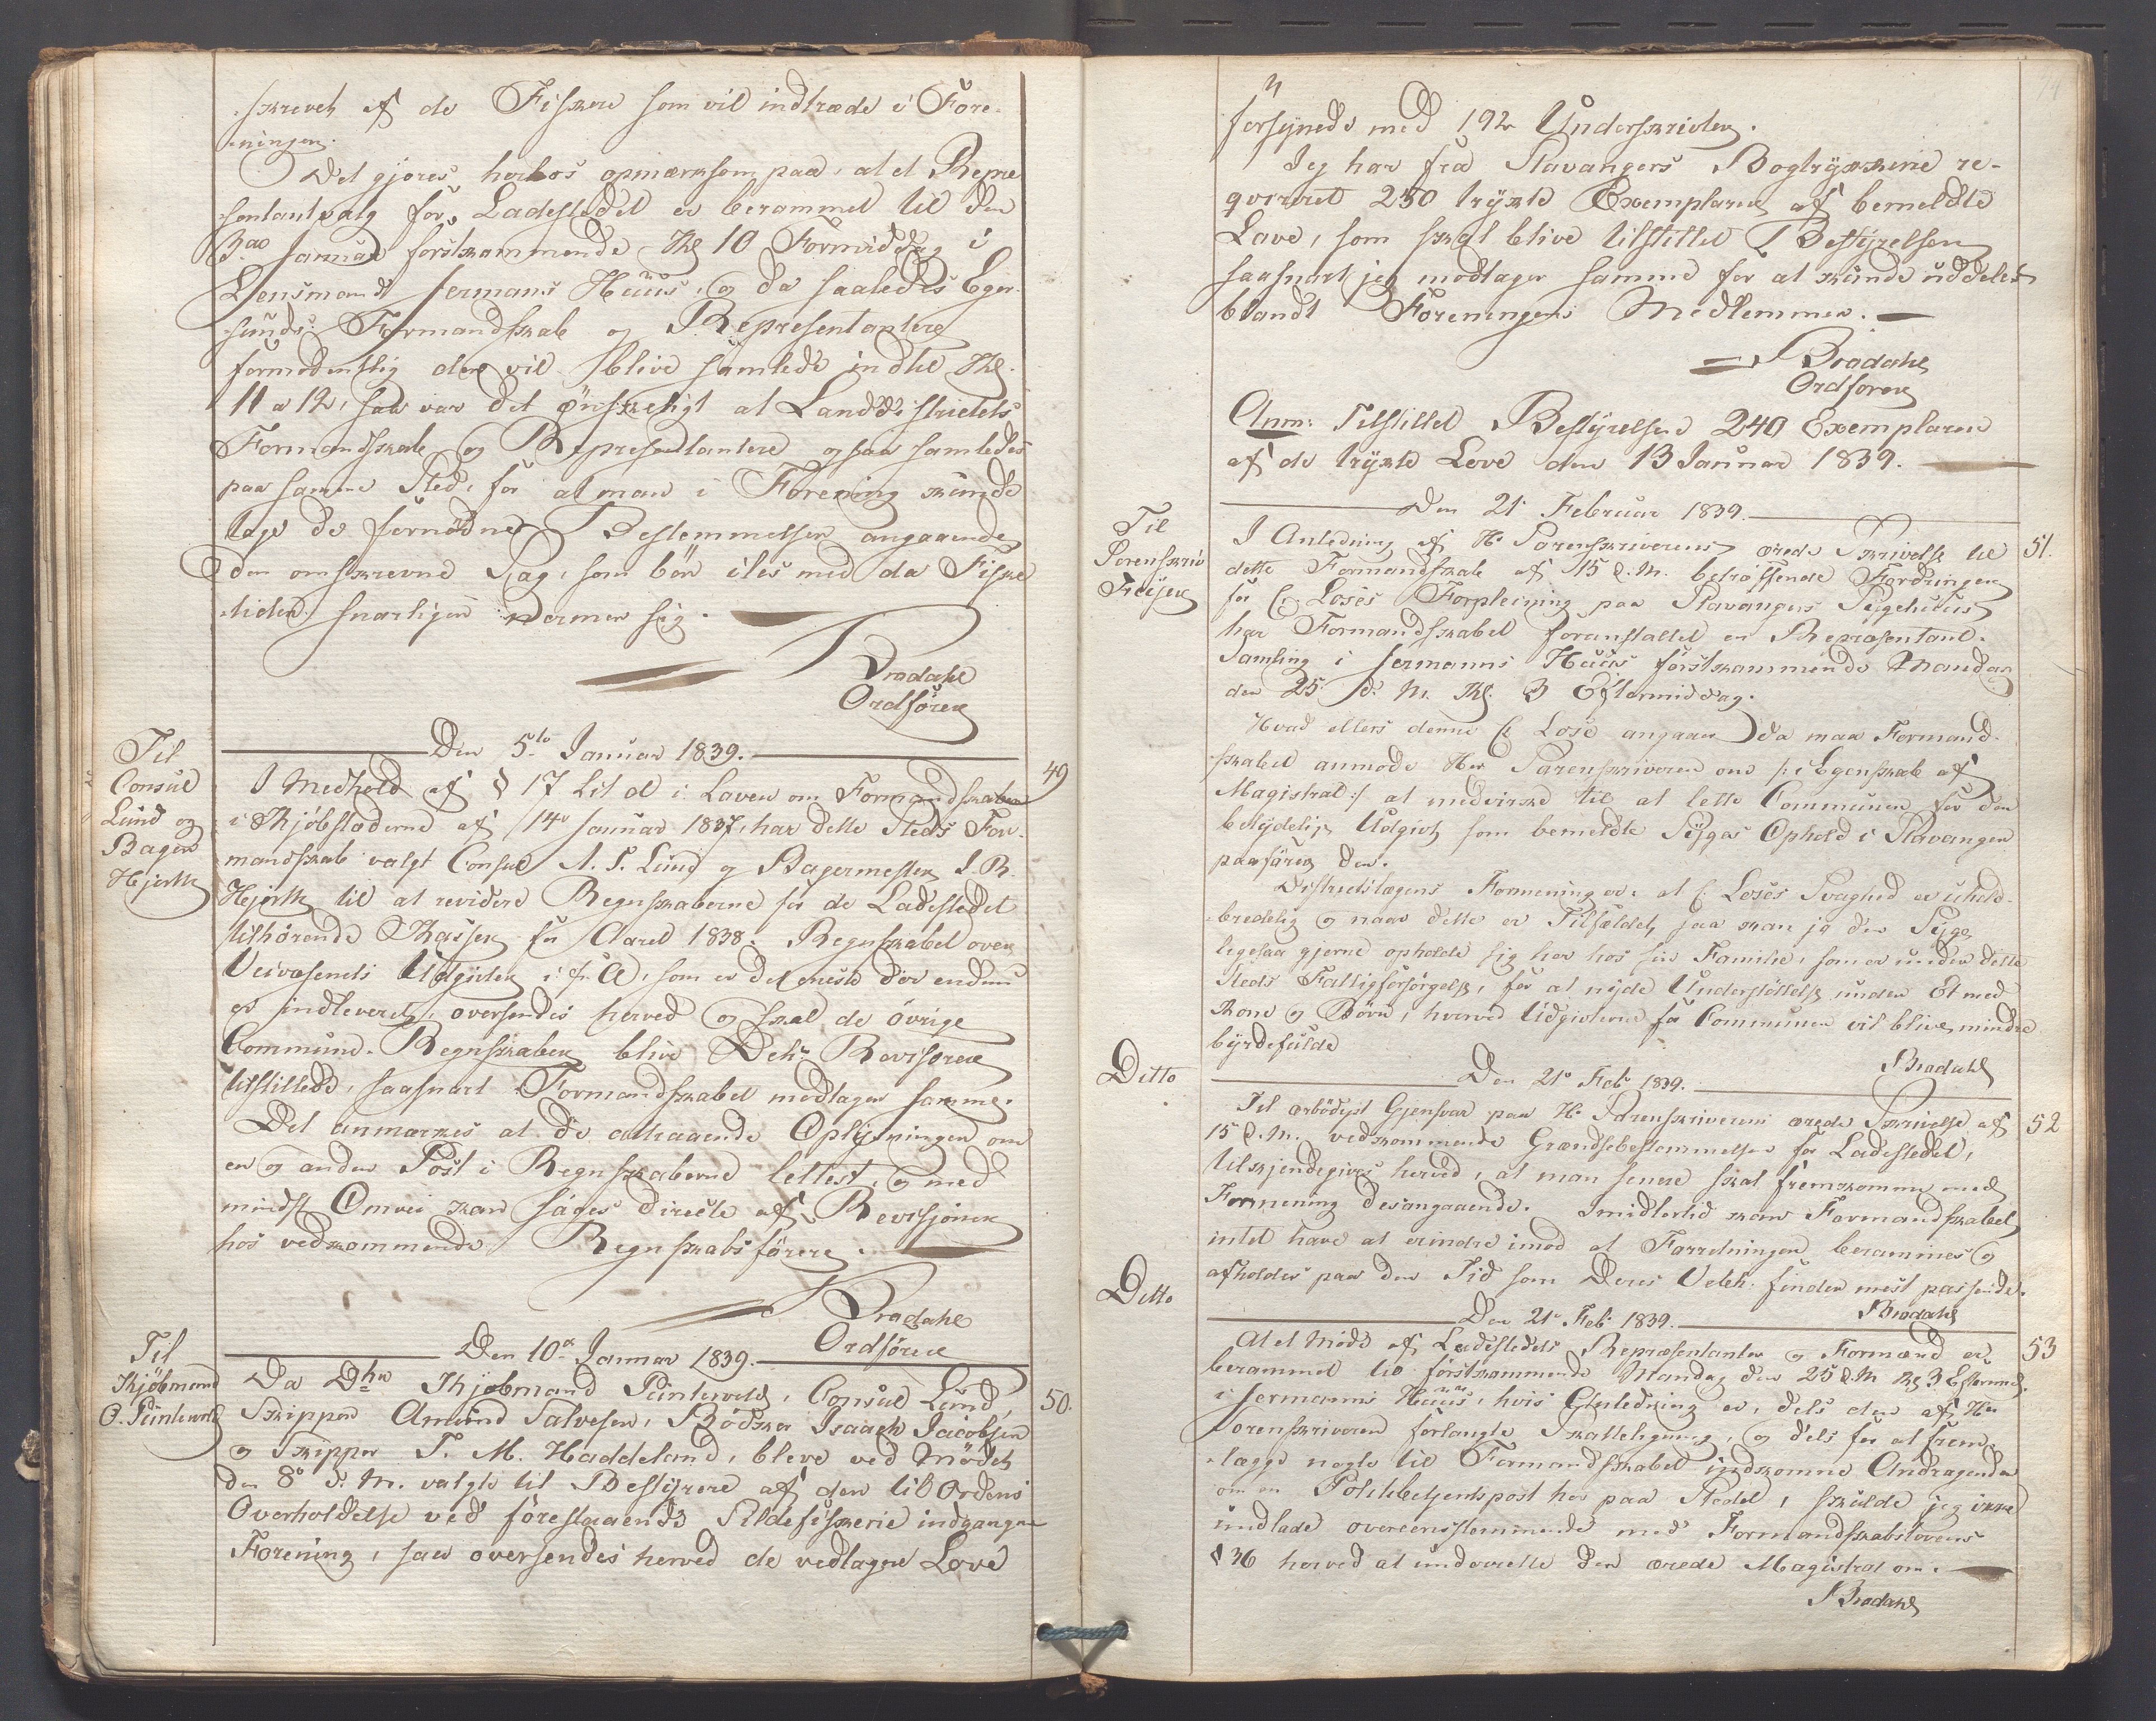 skrevet af de Fiskere som vil indtræde i Fore-
ningen.
Det gjøres herhos opmærksom paa, at et Repræ
sentantvalg for Ladestedet er berammet til den
3die Januar førstkommende Kl 10 Formiddag i
Lensmand Jermans Huus, og da saaledes Eger-
sunds Formandskab og Representantere
formodentlig der vil blive samlede indtil Kl.
11 a 12, saa var det ønskeligt at Landdistrictets
Formandskab og Representantere ogsaa samledes
paa samme Sted, for at man i Forening kunde
tage de fornødne Bestemmelser angaaende
den omskrevne Sag, som bør iles med da Fiske
tiden snarligen nermer sig.
Bradahl
Ordfører
Til
Consul
Lund og
Bager
Hjorth
Den 5te Januar 1839.
49
I Medhold af § 17 Lit d i Loven om Formandskaber
i Kjøbstæderne af 14 Januar 1837, har dette Steds For-
mandskab valgt Consul A. T. Lund og Bagermester I. B.
Hjorth til at revidere Regnskaberne for de Ladestedet
tilhørende Kasser for Aaret 1838. Regnskabet over
Veivæsenets Udgivter i f. A., som er det eneste der endnu
er indleveret, oversendes herved og skal de øvrige
Commune-Regnskaber blive DHr. Revisorer
tilstillede, saasnart Formandskabet modtager samme.
Det anmærkes at de attraaende Oplysninger om
en og anden Post i Regnskaberne lettest, og med
mindst Omvei kan søges directe af Revisjonen
hos vedkommende Regnskabsførere.
Bradahl
Ordfører
Til
Kjøbmand
O. Puntervold
Den 10de Januar 1839.
50.
Da DHr Kjøbmand Puntervold, Consul Lund,
Skipper Amund Salvesen, Bødker Isaack Jacobsen
og Skipper T. M. Haddeland, bleve ved Mødet
den 8de d. M. valgte til Bestyrere af den til Ordens
Overholdelse ved førestaaende Sildefiskerie indgangne
Forening, saa oversendes herved de vedtagne Love
forsynede med 192 Underskrivter.
Jeg har fra Stavangers Bogtrykkerie re-
qvireret 250 trykte Exemplarer af bemeldte
Love, som skal blive tilstillet Bestyrelsen
saasnart jeg modtager samme for at kunde uddeles
blandt Foreningens Medlemmer.
Bradahl
Ordfører
Anm: Tilstillet Bestyrelsen 240 Exemplarer
af de trykte Love den 13 Januar 1839.
Til
Sorenskriv
Feyer
Den 21 Februar 1839.
51.
I Anledning af Hr Sorenskriverens ærede Skrivelse til
dette Formandskab af 15 d. M. betræffende Fordringen
for Loses Forpleining paa Stavangers Sygehuus
har Formandskabet foranstaltet en Repræsentant-
Samling i Jermanns Huus førstkommende Mandag
den 25 d. M. Kl. 3 Eftermiddag.
Hvad ellers denne Lose angaaer da maa Formand-
skabet anmode Her Sorenskriveren om /: i Egenskab af
Magistrat :/ at medvirke til at lette Communen for den
betydelig Udgivt som bemeldte Syges Ophold i Stavanger
paafører den.
Districtslægens Formening er, at Loses Svaghed er uhel-
bredelig og naar dette er Tilfældet, saa kan jo den Syge
ligesaa gjerne opholde sig her hos sin Familie, som er under dette
Steds Fattigforsørgelse, for at nyde Understøttelse under Et med
Kone og Børn, hvorved Udgivterne for Communen vil blive mindre
byrdefulde
Bradahl
Ditto
Den 21 Feb. 1839.
52
Til ærbødigst Gjensvar paa Hr Sorenskriverens ærede Skrivelse af
15 d. M. vedkommende Grændsebestemmelsen for Ladestedet,
tilkjendegives herved, at man senere skal fremkomme med
Formening desangaaende. Imidlertid kan Formandskabet
intet have at erindre imod at Forretningen berammes og
afholdes paa den Tid som Deres Velbh. finder mest passende.
Bradahl
Ditto
Den 21 Feb. 1839.
53
At et Møde af Ladestedets Repræsentanter og Formænd er
berammet til førstkommende Mandag den 25 d. M Kl 3 Efterm.
i Jermanns Huus, hvis Anledning er, dels den af Hr
Sorenskriveren forlangte Skatteligning, og dels for at frem-
lægge nogle til Formandskabet indkomne Andragender
om en Politibetjentpost her paa Stedet, skulde jeg ikke
undlade overeensstemmende med Formandskabslovens
§ 36 herved at underrette den ærede Magistrat om.
Bradahl